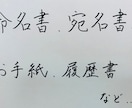 命名書、宛名書
お手紙、履歴書
など…